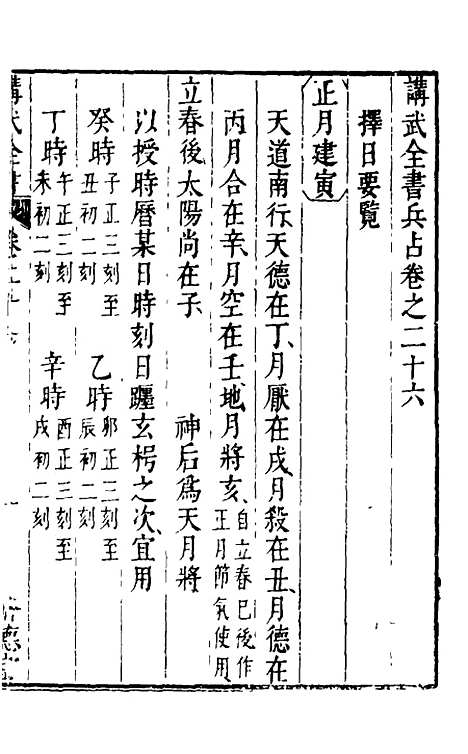 講武全書兵占卷之二十六
擇日要覽
正月建寅
天道南行天德在丁月厭在戌月殺在丑月德在
丙月合在辛月空在壬地月將亥自立春已後作正月節氣使用
立春後太陽尚在子　神后爲天月將
以授時曆某日時刻日躔玄枵之次宜用
癸時子正三刻至丑初二刻　乙時卯正三刻至辰初二刻
丁時午正三刻至未初二刻　辛時酉正三刻至戌初二刻
講武全書